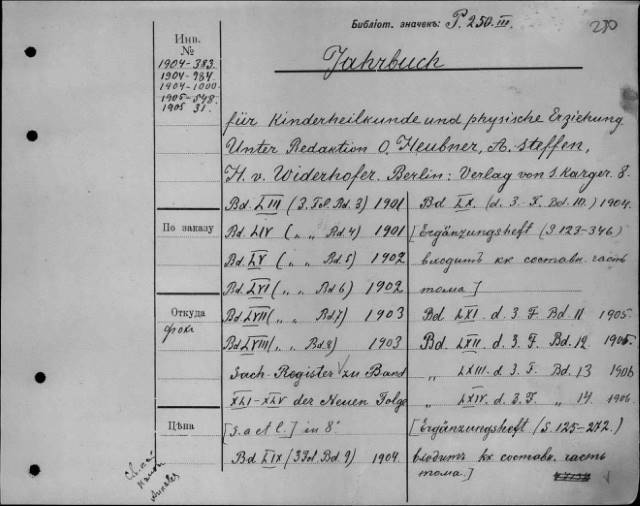 Библіот. значекъ: P. 250. III.
280
Инв.
№
1904-383.
1904-984.
1904-1000.
1905-548.
1905 31.
Jahrbuch
für Kinderheilkunde und physische Erziehung.
Unter Redaktion O. Heubner, A. Steffen,
H. v. Widerhofer. Berlin: Verlag von S. Karger. 8.
Bd. LIII (3. Fol. Bd. 3) 1901
Bd. LIV ( „ „ Bd. 4) 1901
Bd. LV ( „ „ Bd. 5) 1902
Bd. LVI ( „ „ Bd 6) 1902
Bd LVII ( „ „ Bd 7) 1903
Bd. LVIII ( „ „ Bd. 8) 1903
Sach-Register zu Band
XLI-XLV der Neuen Folge
[S. a et l.] in 8°
Bd LIX (3 Fol. Bd. 9) 1904
Bd LX. (d. 3. F. Bd. 10.) 1904.
[Ergänzungsheft (S 123-346)
входитъ кк составн. часть
тома.]
Bd LXI. d. 3. F. Bd. 11 1905
Bd. LXII. d. 3. F. Bd. 12 1905.
„ LXIII. d. 3. F. Bd. 13 1906
„ LXIV. d. 3. F. „ 14. 1906.
[Ergänzungsheft (S. 125-272.)
входитъ кк составн. часть
тома.]
По заказу
Откуда
Цѣна